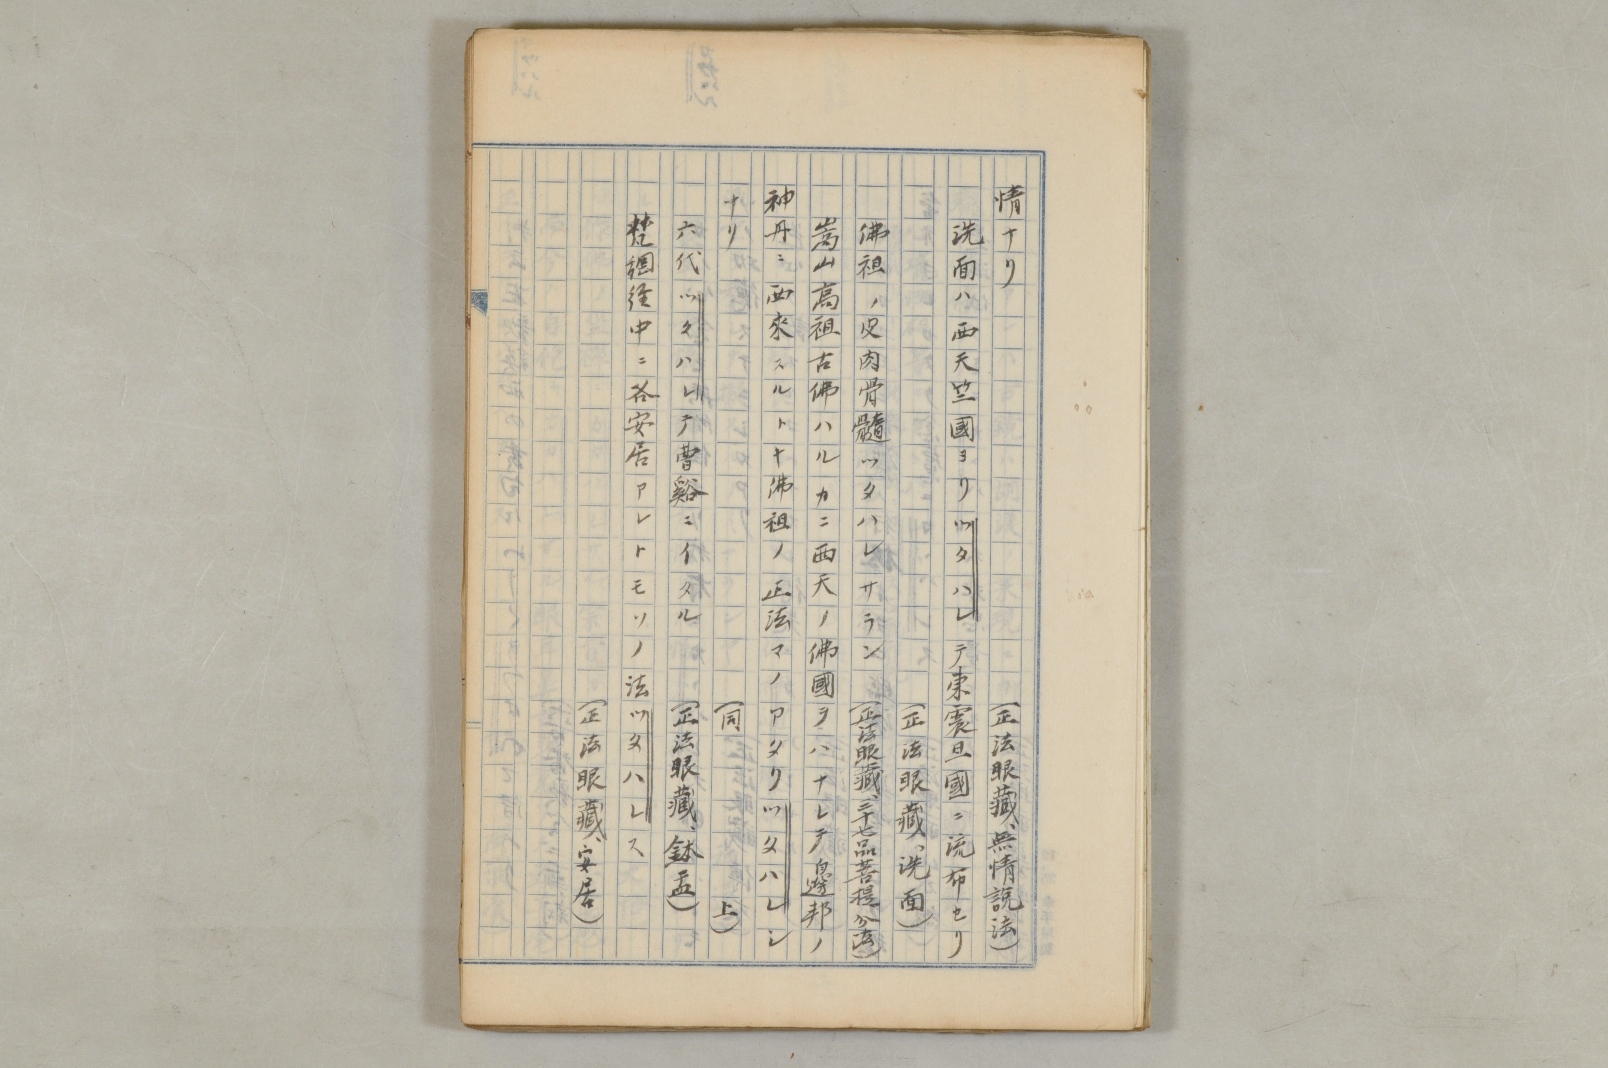 情ナリ
(正法眼藏、無情説法)
洗面ハ西天竺國ヨリツタハレテ東震旦國ニ流布セリ
(正法眼藏、洗面)
佛祖ノ皮肉骨髓ツタハレサラン
(正法眼藏、三十七品菩提分法)
嵩山高祖古佛ハルカニ西天ノ佛國ヲハナレテ邊邦ノ
神丹ニ西來スルトキ佛祖ノ正法マノアタリツタハレシ
ナリ
(同上)
六代ツタハレテ曹谿ニイタル
(正法眼藏、鉢盂)
梵網経中ニ各安居アレトモソノ法ツタハレス
(正法眼藏、安居)